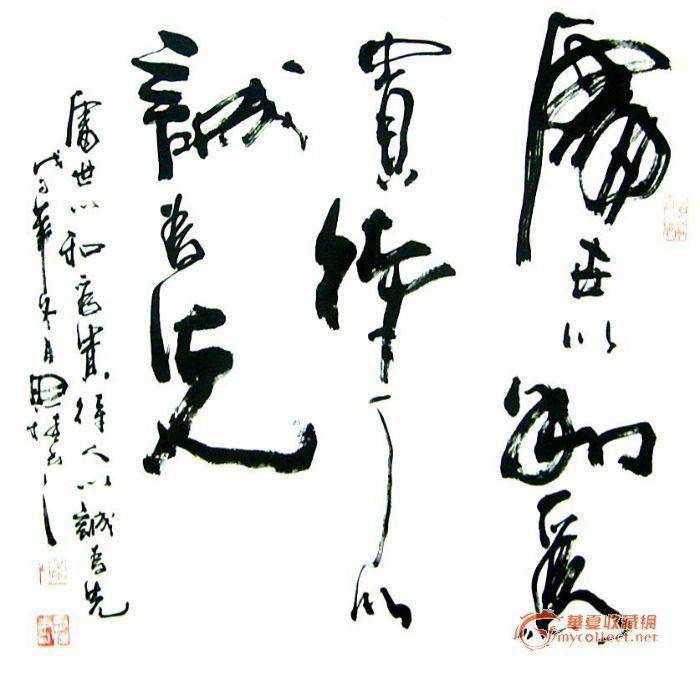 處世以和為
貴待人以
誠為先
處世以和為貴待人以誠為先
華夏收藏網
mycollect.net